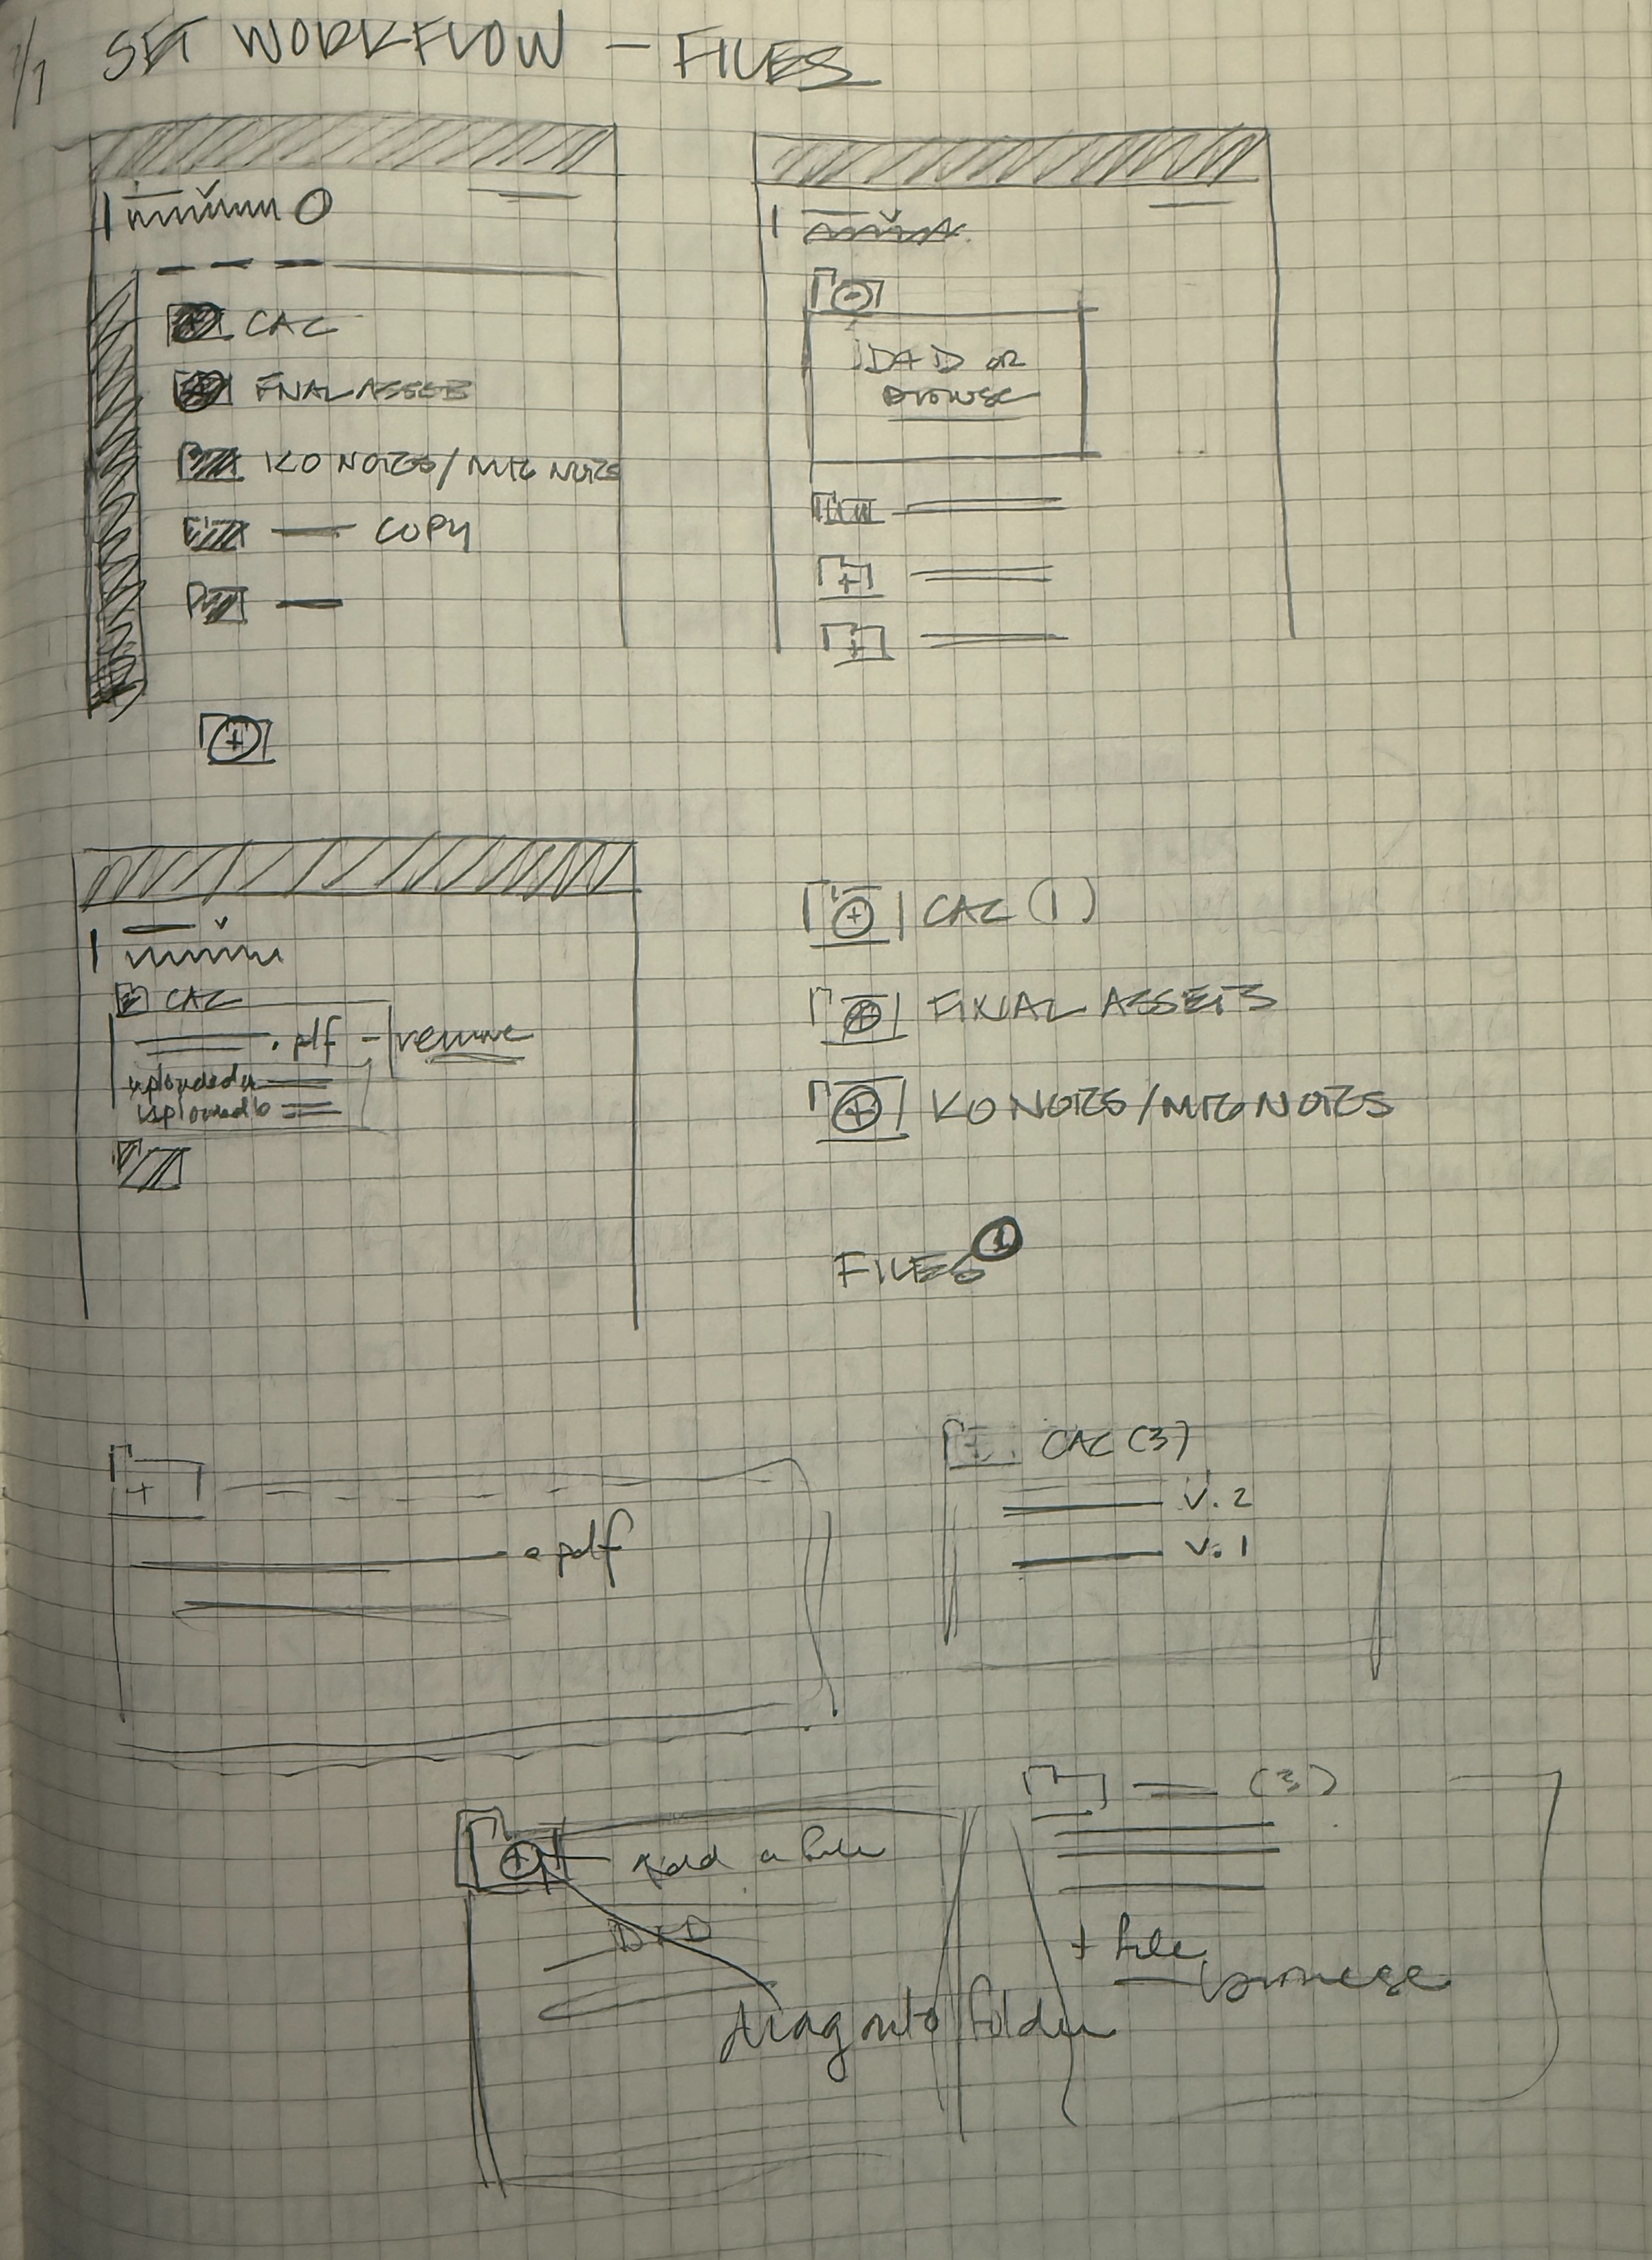 7/1 SET WORKFLOW — FILES
CAC
FINAL ASSETS
KO NOTES/MTG NOTES
COPY
D+D OR
BROWSE
CAC
.pdf - remove
uploaded
uploaded
CAC (1)
FINAL ASSETS
KO NOTES/MTG NOTES
FILES
.pdf
CAC (3)
v. 2
v. 1
(3)
add a file
D+D
+ file
browse
drag onto folder